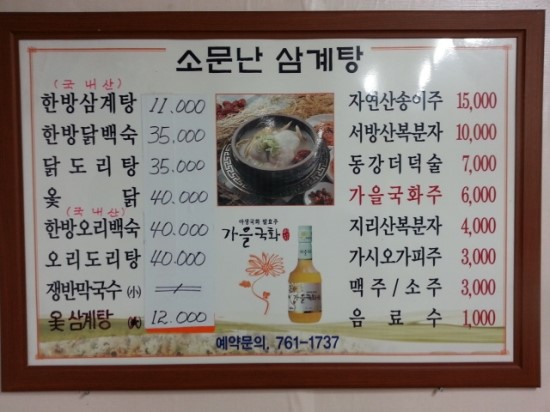 소문난 삼계탕
(국내산)
한방삼계탕 11.000
한방닭백숙 35.000
닭도리탕 35.000
옻 닭 40.000
(국내산)
한방오리백숙 40.000
오리도리탕 40.000
쟁반막국수 (小)
옻삼계탕 12.000
야생국화 발효주
가을국화
가을국화
자연산송이주 15,000
서방산복분자 10,000
동강더덕술 7,000
가을국화주 6,000
지리산복분자 4,000
가시오가피주 3,000
맥주/소주 3,000
음료수 1,000
예약문의. 761-1737